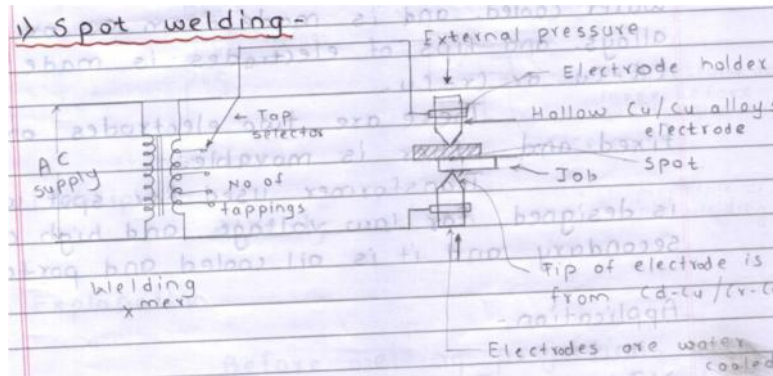 1) Spot welding-
External pressure
Electrode holder
Hollow Cu/Cu alloys
electrode
Spot
Job
Tap
selector
No. of
tappings
AC
supply
Welding
xmer
Tip of electrode is
from Cd-Cu/Cr-C
Electrodes are water
cooled